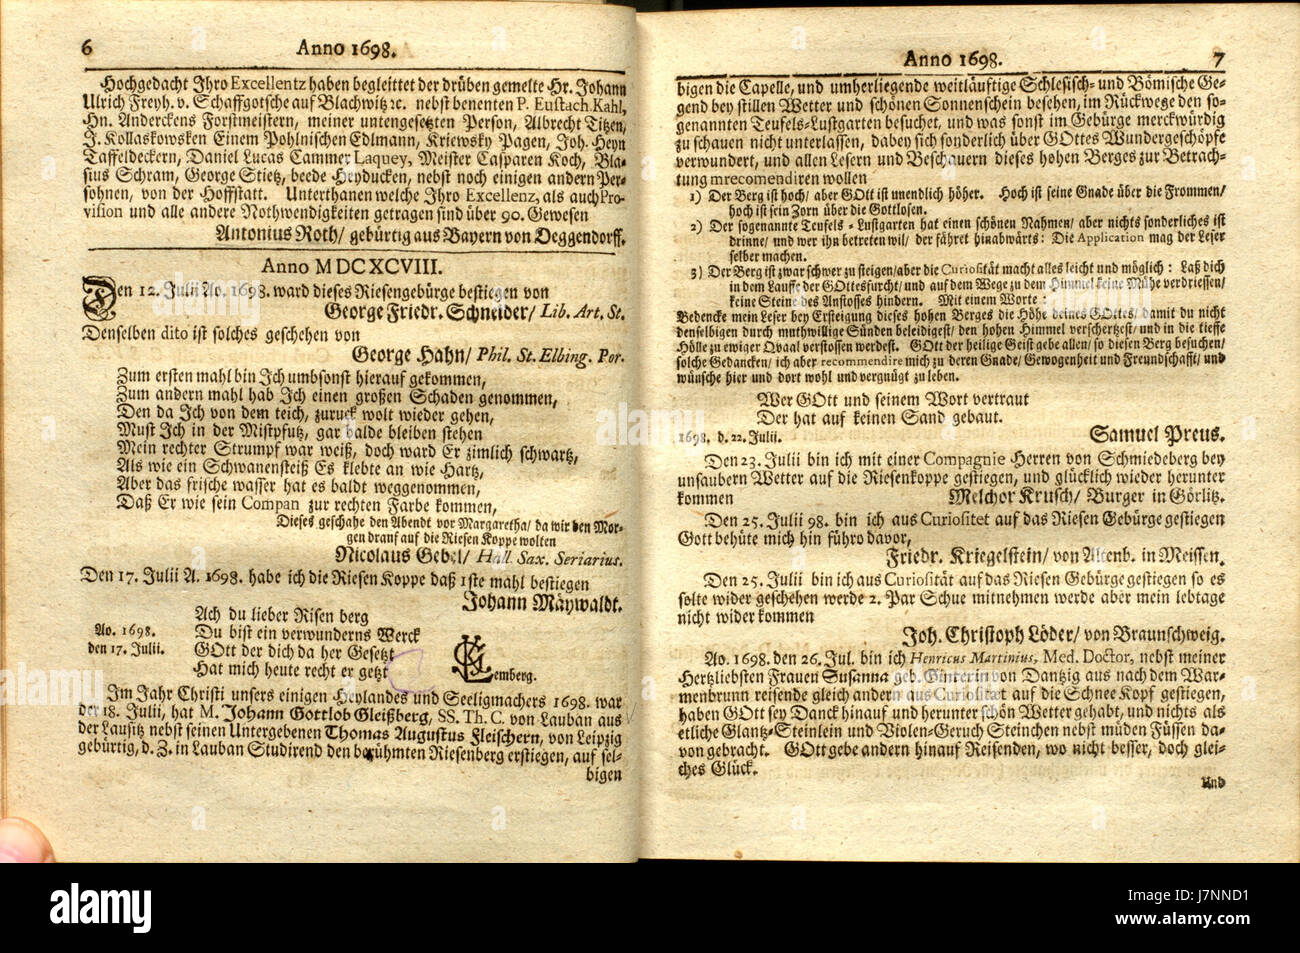 6 Anno 1698.
Hochgedacht Ihro Excellentz haben begleittet der drüben gemelte Hr. Johann
Ulrich Freyh. v. Schaffgotsche auf Blachwitz ꝛc. nebst benenten P. Eustach. Kahl,
Hn. Anderckens Forstmeistern, meiner untengesetzten Person, Albrecht Titzen,
J. Kollaskowsken Einem Pohlnischen Edlmann, Kriewsky Pagen, Joh. Heyn
Taffeldeckern, Daniel Lucas Cammer Laquey, Meister Casparen Koch, Bla-
sius Schram, George Stietz, beede Heyducken, nebst noch einigen andern Per-
sohnen, von der Hoffstatt. Unterthanen welche Ihro Excellenz, als auch Pro-
vision und alle andere Nothwendigkeiten getragen sind über 90. Gewesen
Antonius Roth/ gebürtig aus Bayern von Deggendorff.
Anno MDCXCVIII.
Den 12. Julii Ao. 1698. ward dieses Riesengebürge bestiegen von
George Friedr. Schneider/ Lib. Art. St.
Denselben dito ist solches geschehen von
George Hahn/ Phil. St. Elbing. Por.
Zum ersten mahl bin Ich umbsonst hierauf gekommen,
Zum andern mahl hab Ich einen großen Schaden genommen,
Den da Ich von dem teich, zuruck wolt wieder gehen,
Must Ich in der Mistpfutz, gar balde bleiben stehen
Mein rechter Strumpf war weiß, doch ward Er zimlich schwartz,
Als wie ein Schwanensteiß Es klebte an wie Hartz,
Aber das frische wasser hat es baldt weggenommen,
Daß Er wie sein Compan zur rechten Farbe kommen,
Dieses geschahe den Abendt vor Margaretha/ da wir den Mor-
gen drauf auf die Riesen Koppe wolten
Nicolaus Gebel/ Hall. Sax. Seriarius.
Den 17. Julii A. 1698. habe ich die Riesen Koppe daß 1ste mahl bestiegen
Johann Mäywaldt.
Ach du lieber Risen berg
Ao. 1698. Du bist ein verwunderns Werck
den 17. Julii. GOtt der dich da her Gesetzt
Hat mich heute recht er getzt
Lemberg.
Im Jahr Christi unsers einigen Heylandes und Seeligmachers 1698. war
der 18. Julii, hat M. Johann Gottlob Gleißberg, SS. Th. C. von Lauban aus
der Lausitz nebst seinen Untergebenen Thomas Augustus Fleischern, von Leipzig
gebürtig, d. Z. in Lauban Studirend den berühmten Riesenberg erstiegen, auf sel-
bigen
Anno 1698. 7
bigen die Capelle, und umherliegende weitläuftige Schlesisch- und Bömische Ge-
gend bey stillen Wetter und schönen Sonnenschein besehen, im Rückwege den so-
genannten Teufels-Lustgarten besuchet, und was sonst im Gebürge merckwürdig
zu schauen nicht unterlassen, dabey sich sonderlich über GOttes Wundergeschöpfe
verwundert, und allen Lesern und Beschauern dieses hohen Berges zur Betrach-
tung mrecomendiren wollen
1) Der Berg ist hoch/ aber GOtt ist unendlich höher. Hoch ist seine Gnade über die Frommen/
hoch ist sein Zorn über die Gottlosen.
2) Der sogenannte Teufels - Lustgarten hat einen schönen Nahmen/ aber nichts sonderliches ist
drinne/ und wer ihn betreten wil/ der fähret hinabwärts: Die Application mag der Leser
selber machen.
3) Der Berg ist zwar schwer zu steigen/ aber die Curiosität macht alles leicht und möglich: Laß dich
in dem Lauffe der GOttesfurcht/ und auf dem Wege zu dem Himmel keine Mühe verdriessen/
keine Steine des Anstosses hindern. Mit einem Worte:
Bedencke mein Leser bey Ersteigung dieses hohen Berges die Höhe deines GOttes/ damit du nicht
denselbigen durch muthwillige Sünden beleidigest/ den hohen Himmel verschertzest/ und in die tieffe
Hölle zu ewiger Qvaal verstossen werdest. GOtt der heilige Geist gebe allen/ so diesen Berg besuchen/
solche Gedancken/ ich aber recommendire mich zu deren Gnade/ Gewogenheit und Freundschafft/ und
wünsche hier und dort wohl und vergnügt zu leben.
Wer GOtt und seinem Wort vertraut
Der hat auf keinen Sand gebaut.
1698. d. 22. Julii. Samuel Preus.
Den 23. Julii bin ich mit einer Compagnie Herren von Schmiedeberg bey
unsaubern Wetter auf die Riesenkoppe gestiegen, und glücklich wieder herunter
kommen Melchor Krusch/ Burger in Görlitz.
Den 25. Julii 98. bin ich aus Curiositet auf das Riesen Gebürge gestiegen
Gott behüte mich hin führo davor,
Friedr. Kriegelstein/ von Altenb. in Meissen.
Den 25. Julii bin ich aus Curiosität auf das Riesen Gebürge gestiegen so es
solte wider geschehen werde 2. Par Schue mitnehmen werde aber mein lebtage
nicht wider kommen
Joh. Christoph Löder/ von Braunschweig.
Ao. 1698. den 26. Jul. bin ich Henricus Martinius, Med. Doctor, nebst meiner
Hertzliebsten Frauen Susanna geb. Günterin von Dantzig aus nach dem War-
menbrunn reisende gleich andern aus Curiositet auf die Schnee Kopf gestiegen,
haben GOtt sey Danck hinauf und herunter schön Wetter gehabt, und nichts als
etliche Glantz-Steinlein und Violen-Geruch Steinchen nebst müden Füssen da-
von gebracht. GOtt gebe andern hinauf Reisenden, wo nicht besser, doch glei-
ches Glück.
Und
alamy
Image ID: J7NND1
www.alamy.com